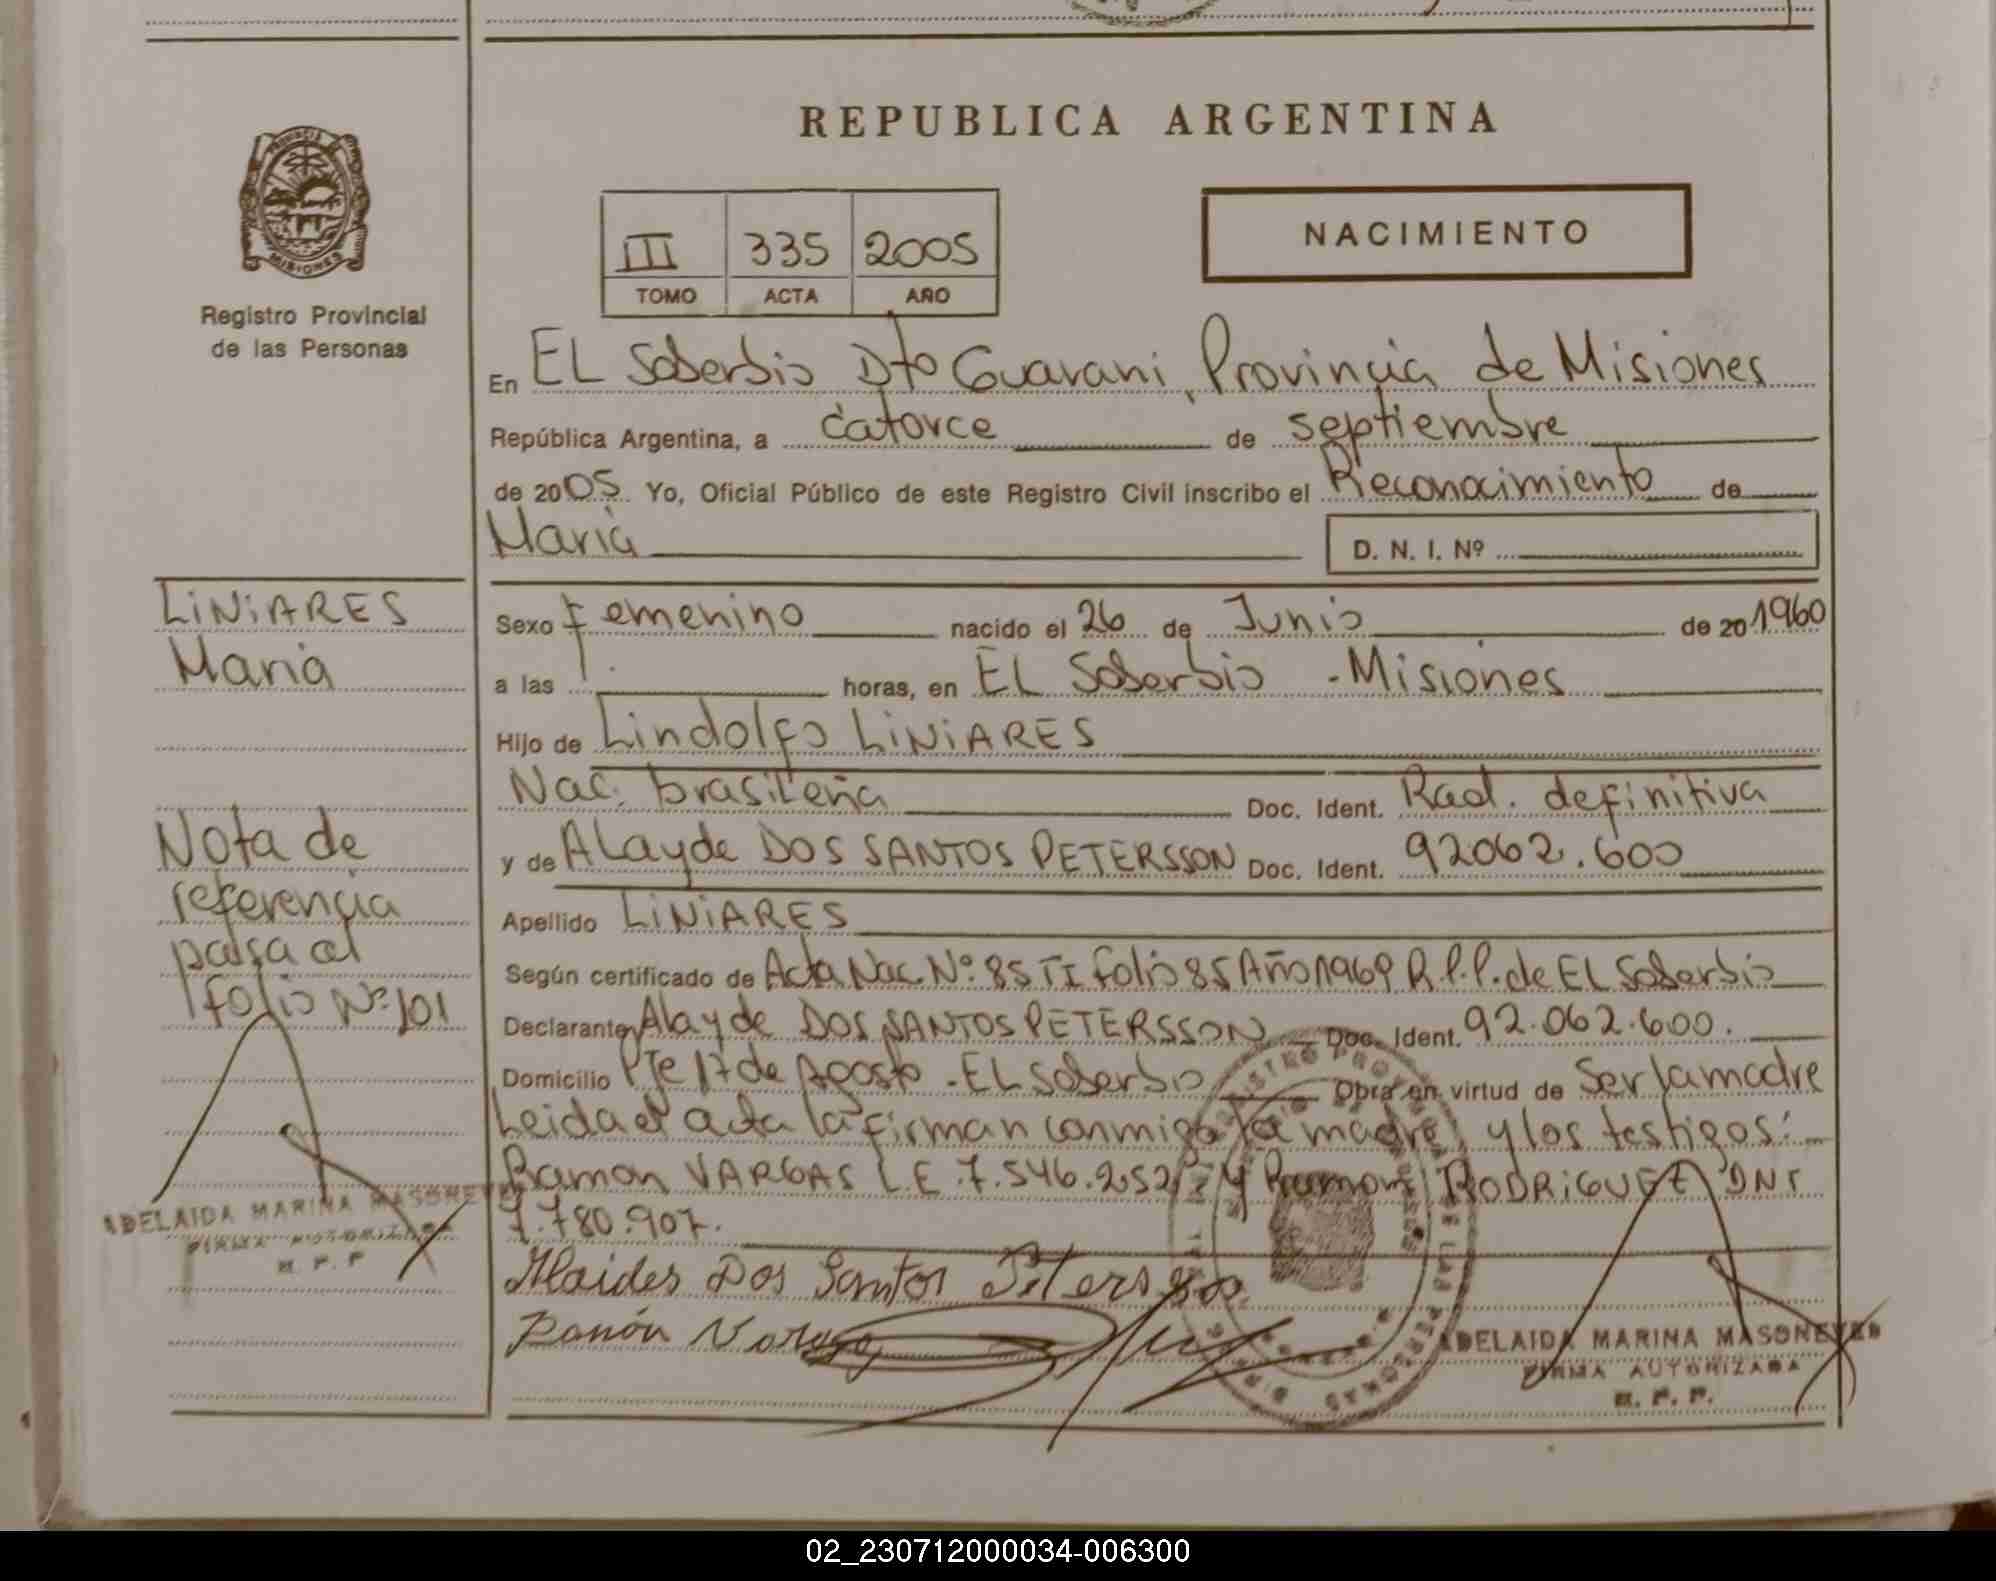 REPUBLICA ARGENTINA
PROVINCIA DE
MISIONES
Registro Provincial
de las Personas
III 335 2005
TOMO ACTA AÑO
NACIMIENTO
En EL Soberbio Dto Guarani, Provincia de Misiones
República Argentina, a catorce de septiembre
de 2005. Yo, Oficial Público de este Registro Civil inscribo el Reconocimiento de
Maria D. N. I. Nº
LiNiARES
Maria
Sexo Femenino nacido el 26 de Junio de 20 1960
a las horas, en EL Soberbio - Misiones
Hijo de Lindolfo LiNiARES
Nac. brasileña Doc. Ident. Rad. definitiva
y de ALayde DOS SANTOS PETERSSON Doc. Ident. 92062.600
Apellido LiNiARES
Según certificado de Acta Nac. Nº 85 TI folio 85 Año 1969 R.P.P. de EL Soberbio
Declarante Alayde DOS SANTOS PETERSSON Doc. Ident. 92.062.600.
Domicilio Pje 17 de Agosto - EL Soberbio Obra en virtud de Ser la madre
Leida el acta la firman conmigo la madre y los testigos:
Ramon VARGAS L.E. 7.546.252 y Ramon RODRiGUEZ DNI
7.780.907.
Nota de
referencia
pasa al
folio Nº 101
ADELAIDA MARINA MASONEVED
FIRMA AUTORIZADA
R. P. P.
Alaides Dos Santos Peterson
Ramón Vargas
ADELAIDA MARINA MASONEVED
FIRMA AUTORIZADA
R. P. P.
02_230712000034-006300